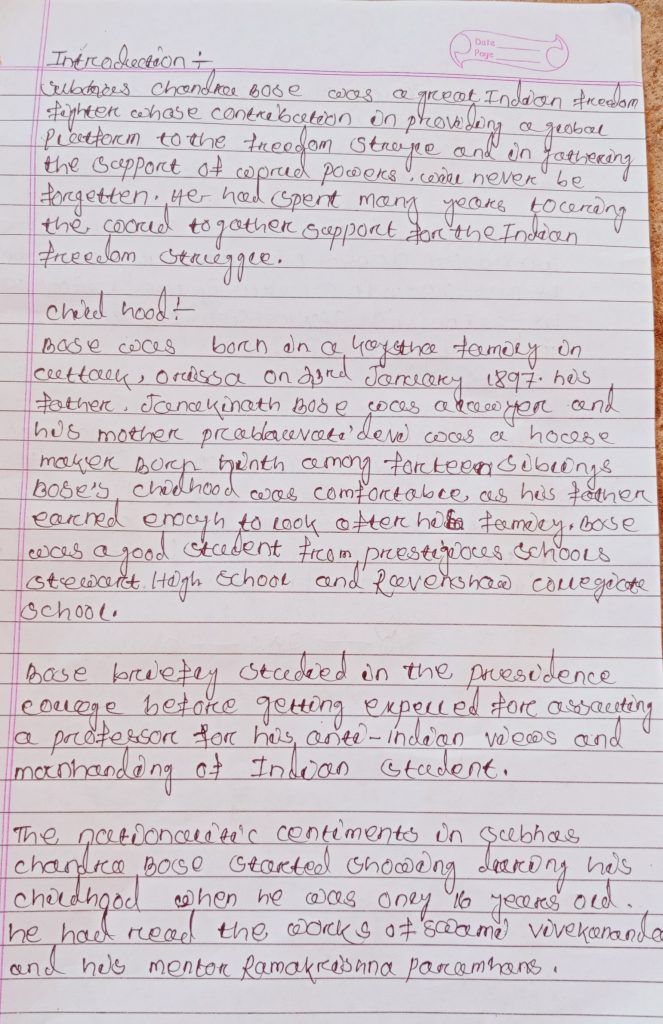 Date
Page
Introduction :-
Subhas Chandra Bose was a great Indian freedom
fighter whose contribution in providing a global
platform to the freedom struggle and in gathering
the support of world powers, will never be
forgetten. Her had spent many years touring
the world to gather support for the Indian
freedom struggle.
Child hood :-
Bose was born in a Kaystha family in
cuttack, orissa on 23rd January 1897. his
father, Janakinath Bose was a lawyer and
his mother prablavati devi was a house
maker Born ninth among forteen siblings
Bose's, childhood was comfortable, as his father
earned enough to look after his family. Bose
was a good student from prestigious schools
stewart High School and Ravenshaw collegiate
school.
Bose briefly studied in the presidence
college before getting expelled for assaulting
a professor for his, anti-indian views and
manhanding of Indian student.
The nationalitic centiments in Subhas
chandra Bose started showing during his
childhood when he was only 16 years old.
he had read the works of swami vivekananda
and his mentor Ramakrishna paramhans.